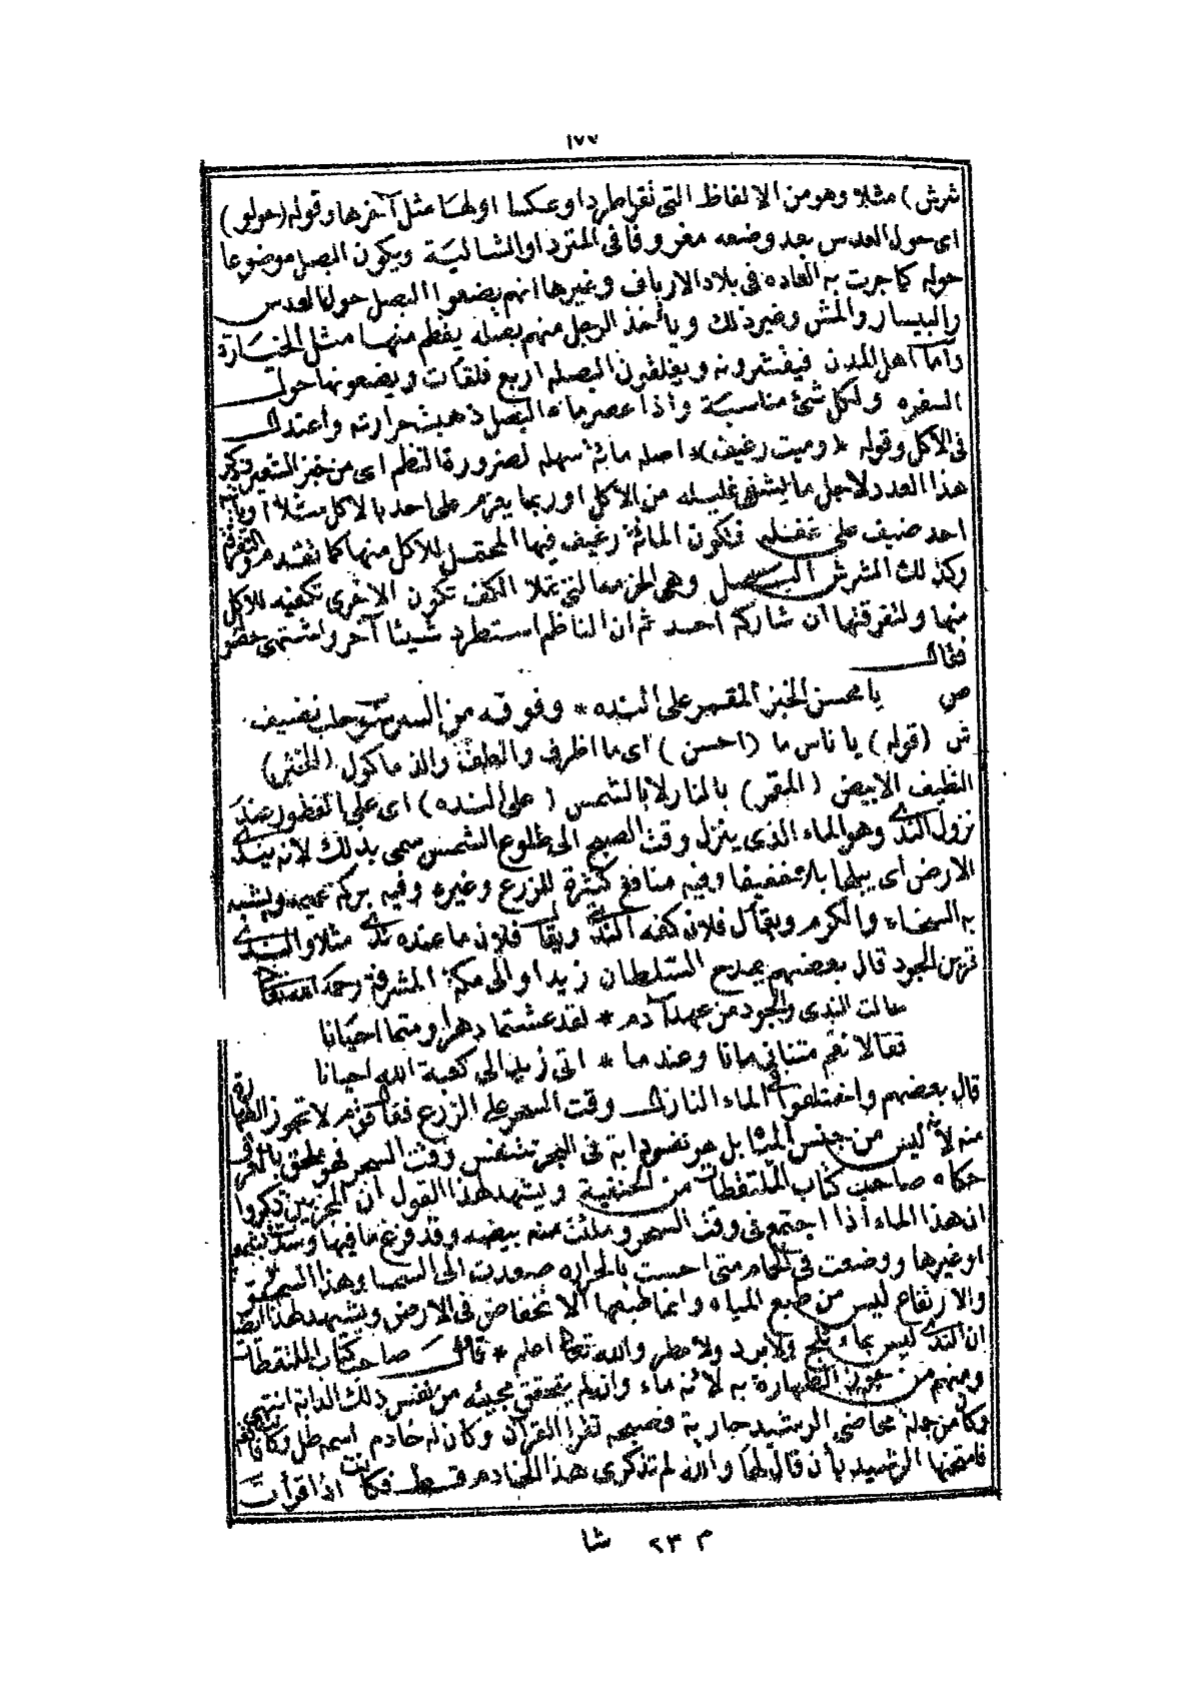 ١٧٧
شرش) مثلا وهو من الالفاظ التى تقرا طردا وعكسا اولها مثل آخرها وقوله (حولو)
اى حول العدس بعد وضعه مغروفا فى المترد او الشالية ويكون البصل موضوعا
حوله كما جرت به العاده فى بلاد الارياف وغيرها انهم يضعوا البصل حول العدس
والبيسار والمش وغير ذلك وياخذ الرجل منهم بصله يقطم منها مثل الخيارة
واما اهل المدن فيقشرونه ويفلقون البصله اربع فلقات ويضعونها حول
السفره ولكل شئ مناسبة واذا عصر ماء البصل ذهبت حرارته واعتدل
فى الاكل وقوله * (وميت رغيف) اصله مائة سهله لضرورة النظم اى من خبز الشعير وذكر
هذا العدد لاجل ما يشفى غليله من الاكل او ربما يعزم على احد بالاكل مثلا او ياتيه
احد ضيف على غفله فتكون المائة رغيف فيها المحتمل للاكل منها كما تقدم والتفرقة
وكذلك الشرش البصل وهى الحزمه التى تملا الكف تكون الاخرى تكفيه للاكل
منها ولتفرقتها ان شاركه احد ثم ان الناظم استطرد شيئا آخر واشتهى
فقال
ص يا محسن الخبز المقمر على النده * وفوقه من السرسوب حلب نضيف
ش (قوله) يا ناس ما (احسن) اى ما اظرف والطف والذ ماكول (الخبز)
النظيف الابيض (المقمر) بالنار لا بالشمس (على النده) اى على الفطور عند
نزول الندى وهو الماء الذى ينزل وقت الصبح الى طلوع الشمس سمى بذلك لانه يندى
الارض اى يبلها بلا خفيفا وفيه منافع كثيرة للزرع وغيره وفيه بركه عميمه ويشبه
به السخاء والكرم ويقال فلان كفه الندى ويقال فلان ما عنده ندى مثلا والندى
قرين الجود قال بعضهم يمدح السلطان زيدا والى مكة المشرفة رحمه الله تعالى
سالت الندى والجود من عهد آدم * لقد عشتما دهرا ومتما احيانا
فقالا نعم متنا زمانا وعندما * اتى زيد الى كعبة الله احيانا
قال بعضهم واختلفوا فى الماء النازل وقت السحر على الزرع فقال قوم لا تجوز الطهارة
منه لانه ليس من جنس الماء بل هو نفس دابة فى البحر تتنفس وقت السحر فهو ملحق بالعرق
حكاه صاحب كتاب الملتقطات من الحنفية ويشهد لهذا القول ان المجربين ذكروا
ان هذا الماء اذا اجتمع فى وقت السحر وملئت منه بيضه وقد فرغ ما فيها وسد
او غيرها ووضعت فى الحمام متى احست بالحراره صعدت الى السما وهذا السمو
والارتفاع ليس من طبع المياه وانما طبعها الانخفاض فى الارض ويشهد لهذا ايضا
ان الندى ليس بماء ثلج ولا برد ولا مطر والله تعالى اعلم * قال صاحب كتاب الملتقطات
ومنهم من جوز الطهارة به لانه ماء وان لم يتحقق مجيئه من نفس ذلك الدابة انتهى
وكان من جملة محاضى الرشيد جارية فصيحه تقرا القرآن وكان له خادم اسمه طل وكان
فامتحنها الرشيد بأن قال لها والله لم تذكرى هذا الخادم قط فكانت اذا قرأت
م ٢٣ شا